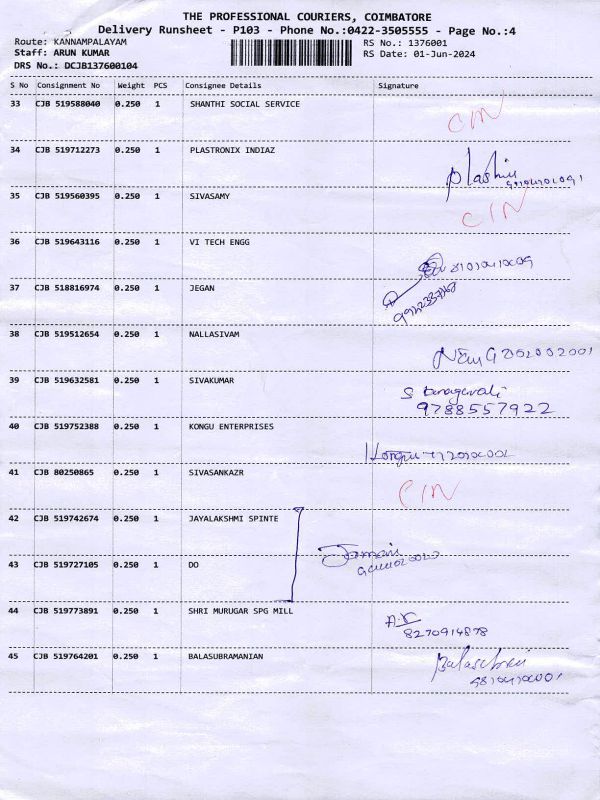 THE PROFESSIONAL COURIERS, COIMBATORE
Delivery Runsheet - P103 - Phone No.:0422-3505555 - Page No.:4
Route: KANNAMPALAYAM RS No.: 1376001
Staff: ARUN KUMAR RS Date: 01-Jun-2024
DRS No.: DCJB137600104
S No Consignment No Weight PCS Consignee Details Signature
33 CJB 519588040 0.250 1 SHANTHI SOCIAL SERVICE
CIN
34 CJB 519712273 0.250 1 PLASTRONIX INDIAZ
35 CJB 519560395 0.250 1 SIVASAMY
CIN
36 CJB 519643116 0.250 1 VI TECH ENGG
37 CJB 518816974 0.250 1 JEGAN
38 CJB 519512654 0.250 1 NALLASIVAM
39 CJB 519632581 0.250 1 SIVAKUMAR
9788557922
40 CJB 519752388 0.250 1 KONGU ENTERPRISES
41 CJB 80250865 0.250 1 SIVASANKAZR
CIN
42 CJB 519742674 0.250 1 JAYALAKSHMI SPINTE
43 CJB 519727105 0.250 1 DO
44 CJB 519773891 0.250 1 SHRI MURUGAR SPG MILL
8270914878
45 CJB 519764201 0.250 1 BALASUBRAMANIAN